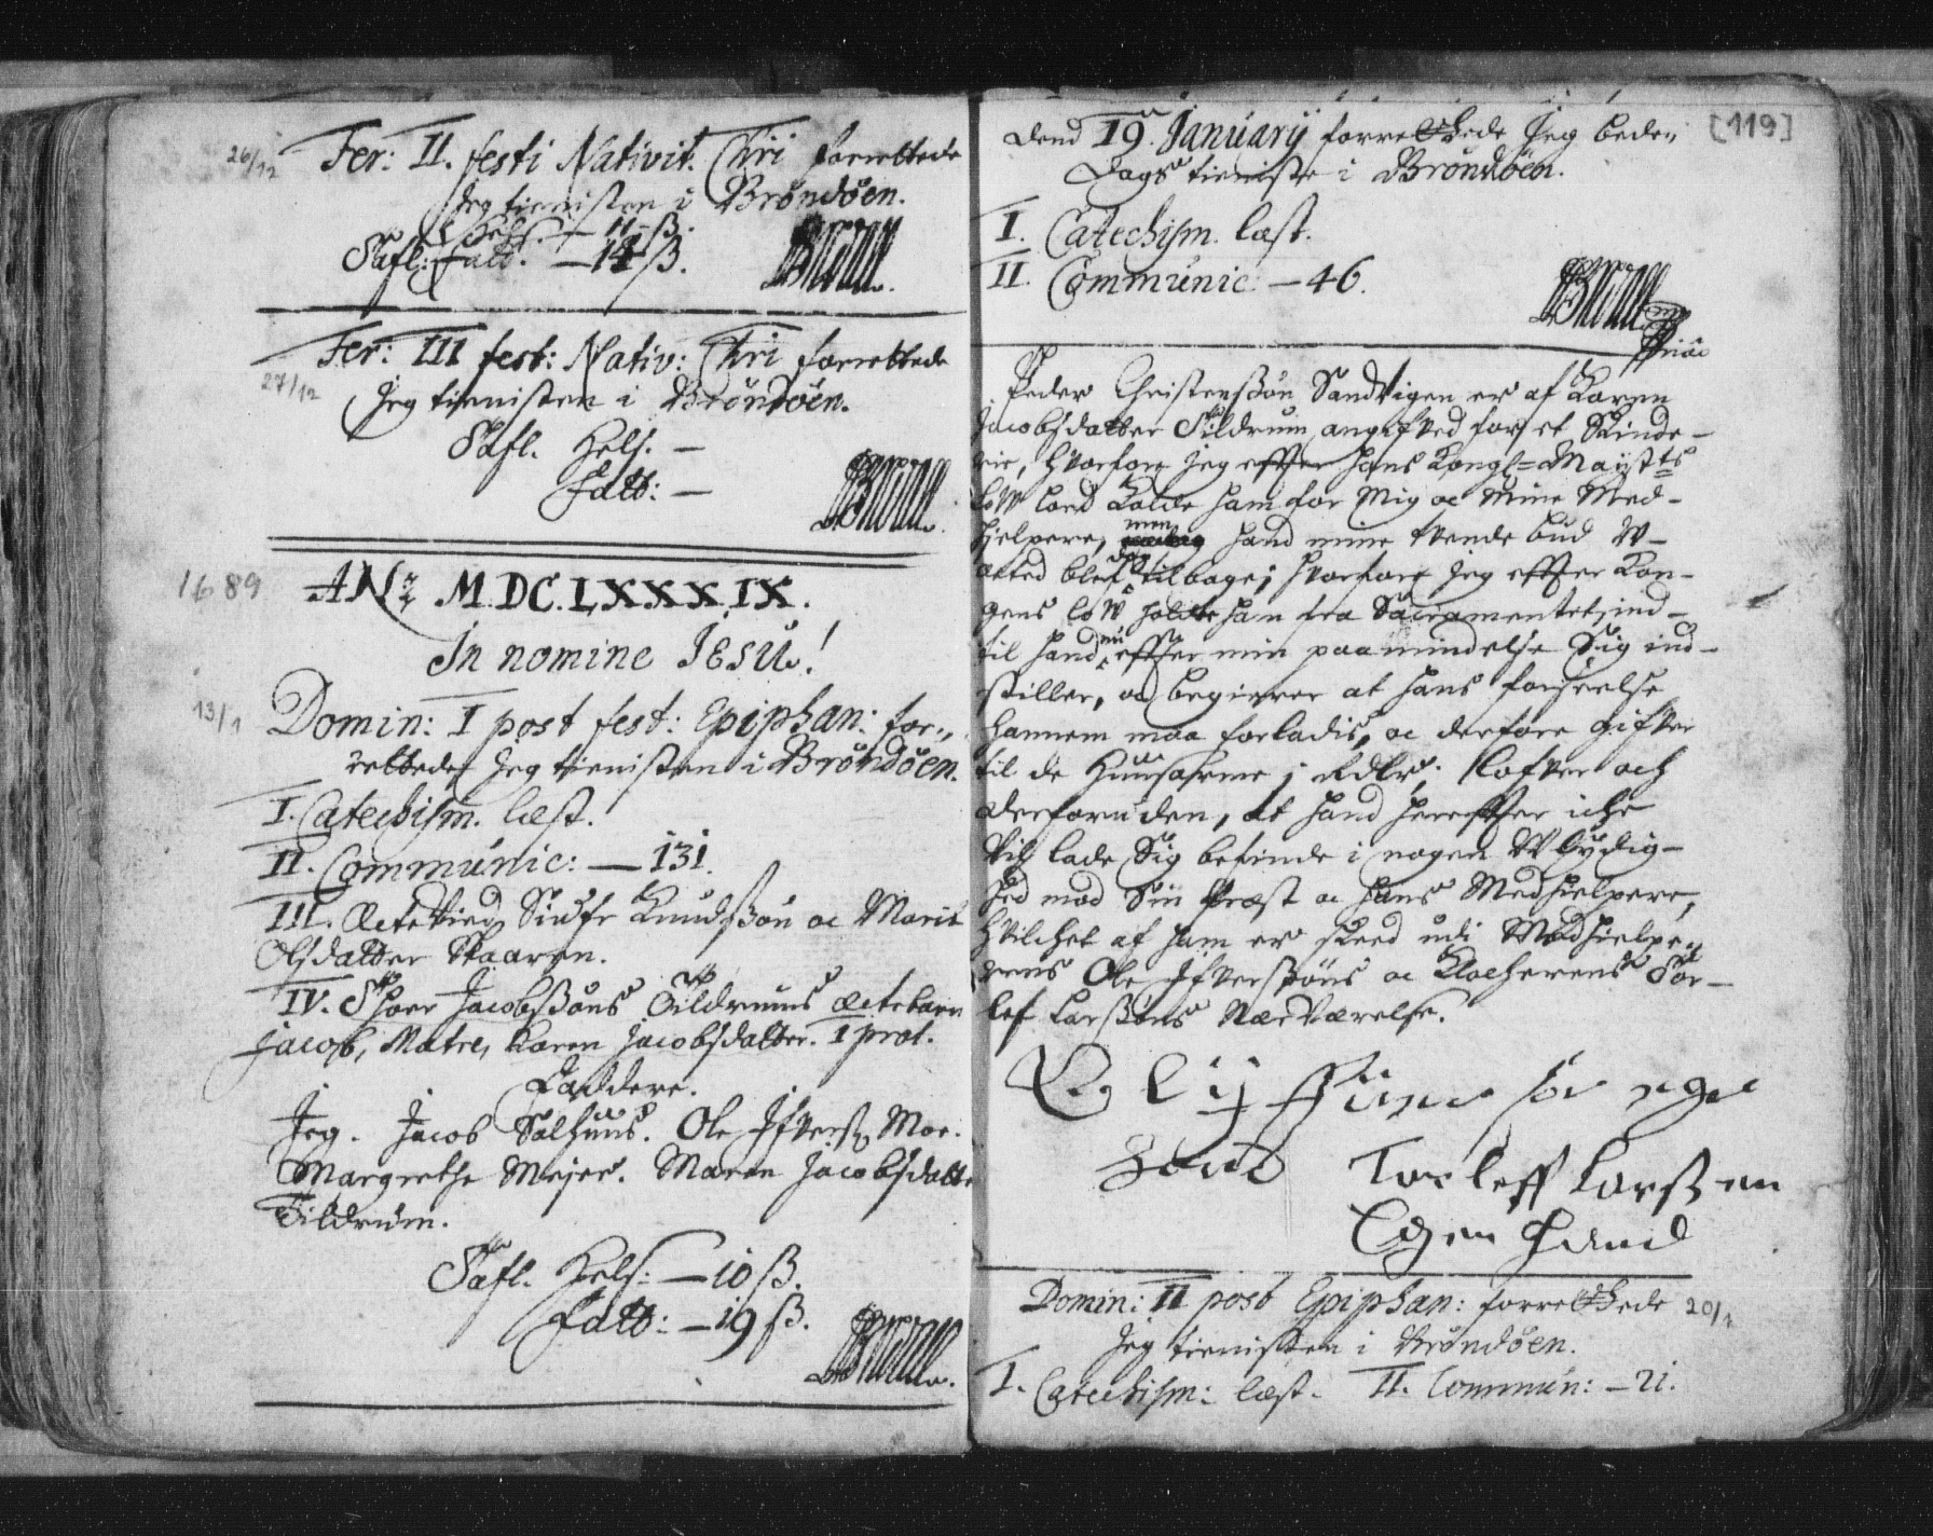 26/12
Fer: II. festi Nativit. Chri forrettede
Jeg tienisten i Brøndøen.
Hels. — 11 ß.
Tafl: Fatt. — 14 ß.
Fer: III fest: Nativ: Chri forrettede
27/12
Jeg tienisten i Brøndøen.
Tafl. Hels. —
Fatt: —
1689
M.DC.LXXXIX.
In nomine JESU!
13/1
Domin: I post fest: Epiphan: for-
rettede Jeg tienisten i Brøndøen.
I. Catechism. læst.
II. Communic: — 131.
III. Ectevied Siufr Knudsøn oc Marit
Olsdatter Skaaren.
IV. Thoer Jacobsøns Tildrums ectebarn
Jacob, Matre, Karen Jacobsdatter. I prol.
Faddere.
Jeg. Jacob Salhuus. Ole Ifversøn Moe.
Margrethe Meyer. Maren Jacobsdatter
Tildrum.
Tafl. Hels: — 10 ß.
Fatt: — 19 ß.
[119]
Dend 19. January forrettede Jeg bede-
Dags tieniste i Brøndøen.
I. Catechism. læst.
II. Communic: — 46.
Peder Christensøn Sandvigen er af Karen
Jacobsdatter Tildrum angifved for et Skinde-
rie, hvorfore jeg effter hans Kongl= Mayst:ts
low lod kalde ham for Mig oc Mine Med-
hielpere, men hand mine tvende bud W-
acted blef dog tilbage; hvorfore jeg effter Kon-
gens low holdte ham fra Sacramentet, ind-
til hand nu effter min paamindelse Sig ind-
stiller, oc begierer at hans forseelse
hannem maa forladis, oc derfore gifver
til de Huusarme j Rdlr; lofver och
derforuden, at hand hereffter iche
vil lade Sig befinde i nogen Wlydig-
hed mod Sin Præst oc hans Medhielpere,
hvilchet af ham er skeed udi Medhielpe-
rens Ole Ifversøns oc Klocherens Tor-
lef Larsøns Nærværelse.
Olle Iffuersøn egen
Haand Torleff Larssen
Egen Haand
Domin: II post Epiphan: forrettede 20/1
Jeg tienisten i Brøndøen.
I. Catechism: læst. II. Commun: — 21.